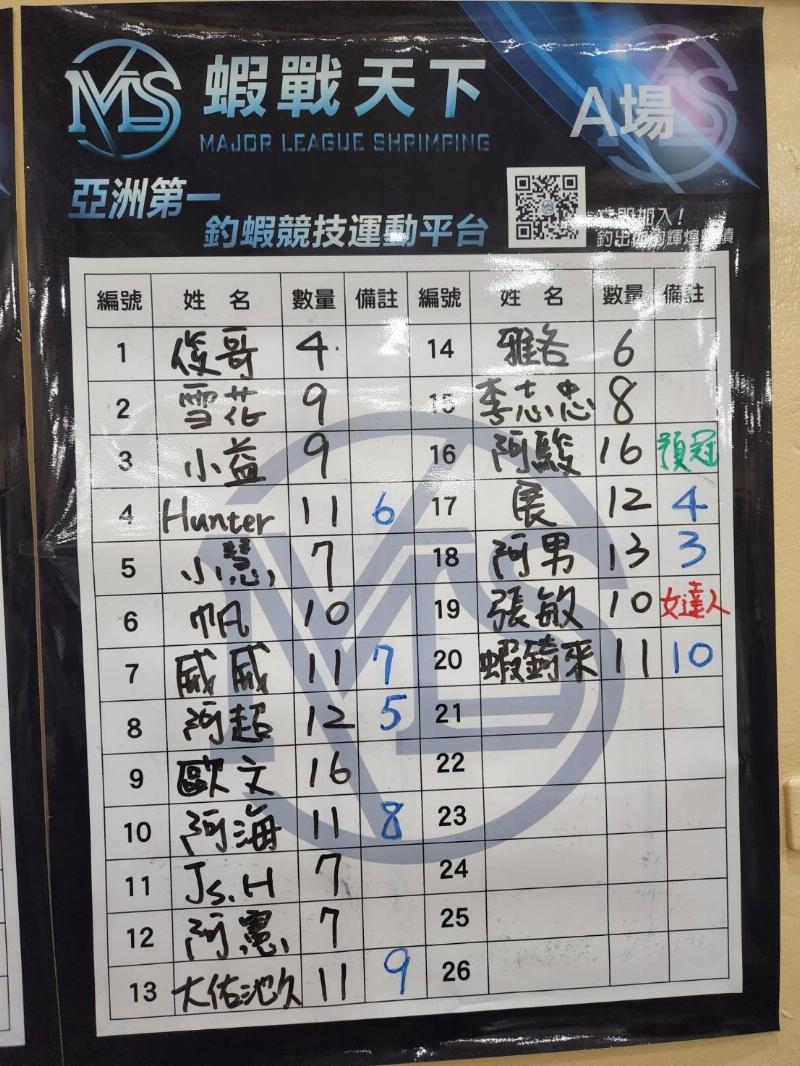 MS 蝦戰天下
MAJOR LEAGUE SHRIMPING
A場
亞洲第一
釣蝦競技運動平台
加入！
釣出 輝煌 績
編號 姓名 數量 備註 編號 姓名 數量 備註
1 俊哥 4 14 雅各 6
2 雪花 9 15 李志忠 8
3 小益 9 16 阿駿 16 預冠
4 Hunter 11 6 17 展 12 4
5 小慧 7 18 阿男 13 3
6 帆 10 19 張敏 10 女達人
7 威威 11 7 20 蝦錡來 11 10
8 阿超 12 5 21
9 歐文 16 22
10 阿海 11 8 23
11 Js.H 7 24
12 阿憲 7 25
13 大佑池久 11 9 26